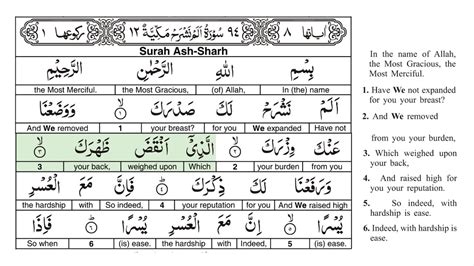 اٰيَاتُهَا ٨ ٩٤ سُوْرَةُ اَلَمْ نَشْرَحْ مَكِّيَّةٌ ١٢ رُكُوْعُهَا ١
Surah Ash-Sharh
بِسْمِ اللّٰهِ الرَّحْمٰنِ الرَّحِيْمِ
the Most Merciful. the Most Gracious, (of) Allah, In (the) name
اَلَمْ نَشْرَحْ لَكَ صَدْرَكَ ١ وَوَضَعْنَا
And We removed 1 your breast? for you We expanded Have not
عَنْكَ وِزْرَكَ ٢ الَّذِيْٓ اَنْقَضَ ظَهْرَكَ ٣
3 your back, weighed upon Which 2 your burden, from you
وَرَفَعْنَا لَكَ ذِكْرَكَ ٤ فَاِنَّ مَعَ الْعُسْرِ
the hardship with So indeed, 4 your reputation for you And We raised high
يُسْرًا ٥ اِنَّ مَعَ الْعُسْرِ يُسْرًا ٦ فَاِذَا
So when 6 (is) ease. the hardship with Indeed, 5 (is) ease.
In the name of Allah,
the Most Gracious, the
Most Merciful.
1. Have We not expanded
for you your breast?
2. And We removed
from you your burden,
3. Which weighed upon
your back,
4. And raised high for
you your reputation.
5. So indeed, with
hardship is ease.
6. Indeed, with hardship is
ease.